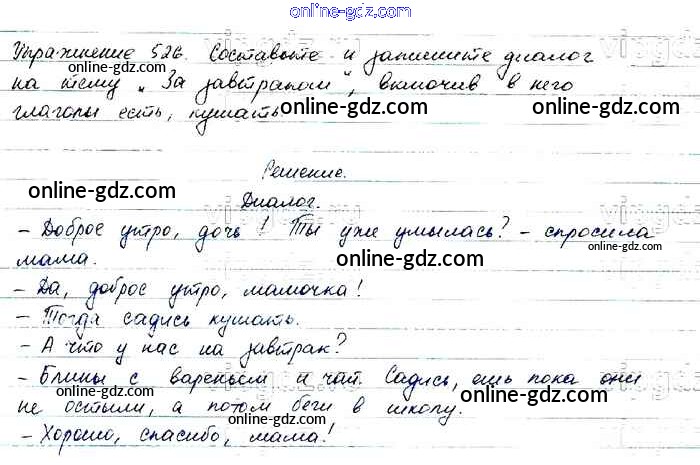 online-gdz.com
Упражнение 526. Составьте и запишите диалог
online-gdz.com
на тему „За завтраком", включив в него
глаголы есть, кушать.
online-gdz.com
online-gdz.com
Решение.
online-gdz.com
online-gdz.com
Диалог.
- Доброе утро, дочь! Ты уже умылась? - спросила
мама.
online-gdz.com
- Да, доброе утро, мамочка!
online-gdz.com
- Тогда садись кушать.
- А что у нас на завтрак?
online-gdz.com
- Блины с вареньем и чай. Садись, ешь пока они
не остыли, а потом беги в школу.
online-gdz.com
online-gdz.com
- Хорошо, спасибо, мама!